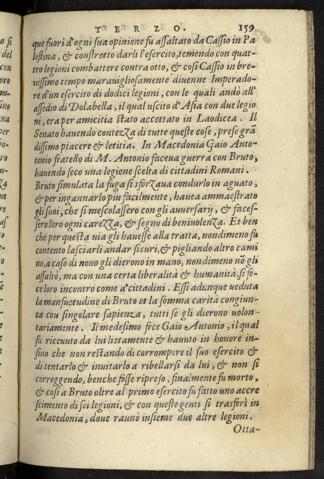 TERZO. 159
que fuori d'ogni sua opinione fu assaltato da Cassio in Pa
lestina, & constretto darli l'esercito, temendo con quat-
tro legioni combattere contra otto, & così Cassio in bre-
uissimo tempo marauigliosamente diuenne Imperado-
re d'un esercito di dodici legioni, con le quali andò all'
assedio di Dolabella, il qual uscito d'Asia con due legio
ni, era per amicitia stato accettato in Laodicea. Il
Senato hauendo contezza di tutte queste cose, prese grã
dissimo piacere & letitia. In Macedonia Gaio Anto-
tonio fratello di M. Antonio faceua guerra con Bruto,
hauendo seco una legione scelta di cittadini Romani.
Bruto simulata la fuga si sforzaua condurlo in aguato,
& per ingannarlo piu facilmente, haueа ammaestrato
gli suoi, che si mescolassero con gli auuersarij, & faces-
sero loro ogni carezza, & segno di beniuolenza. Et ben
che per questa uia gli hauesse alla tratta, nondimeno fu
contento lasciarli andar sicuri, & pigliando altro cami
no, a caso di nouo gli dierono in mano, nondimeno nõ gli
assaltò, ma con una certa liberalità & humanità, si fe-
ce loro incontro come a cittadini. Essi adunque ueduta
la mansuetudine di Bruto et la somma carità congiun-
ta con singolare sapienza, tutti se gli dierono uolon-
tariamente. Il medesimo fece Gaio Antonio, il qual
fu riceuuto da lui lietamente & hauuto in honore in-
sino che non restando di corrompere il suo esercito &
di tentarlo & inuitarlo a ribellarsi da lui, & non si
correggendo, benche fosse ripreso, finalmente fu morto,
& così a Bruto oltre al primo esercito fu fatto uno accre
scimento di sei legioni, & con queste genti si trasferì in
Macedonia, doue raunò insieme due altre legioni.
Otta-